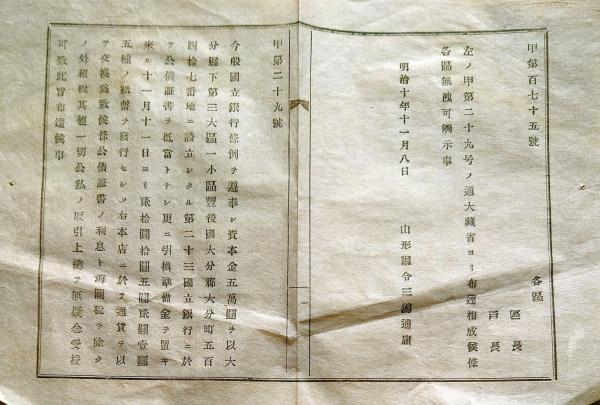 甲第百七十五號
各區
區長
戸長
左ノ甲第二十九号ノ通大藏省ヨリ布達相成候條
各區無洩可觸示事
明治十年十一月八日
山形縣令三島通庸
甲第二十九號
今般國立銀行條例ヲ遵奉シ資本金五萬圓ヲ以大
分縣下第三大區一小區豐後國大分郡大分町五百
四拾七番地ニ設立シタル第二十三國立銀行ニ於
ヲ公債証書ヲ抵當トナシ更ニ引換準備金ヲ置キ
來ル十一月十一日ヨリ貳拾圓拾圓五圓貳圓壹圓
五種ノ紙幣ヲ發行セシメ右本店ニ於テ通貨ヲ以
テ交換爲致候條公債証書ノ利息ト海關稅ヲ除ク
ノ外租稅其他一切公私ノ取引上總テ無疑念受授
可致此旨布達候事